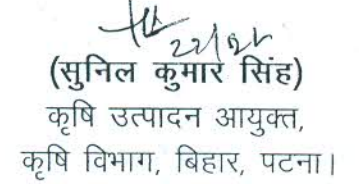 22/02
(सुनिल कुमार सिंह)
कृषि उत्पादन आयुक्त,
कृषि विभाग, बिहार, पटना।